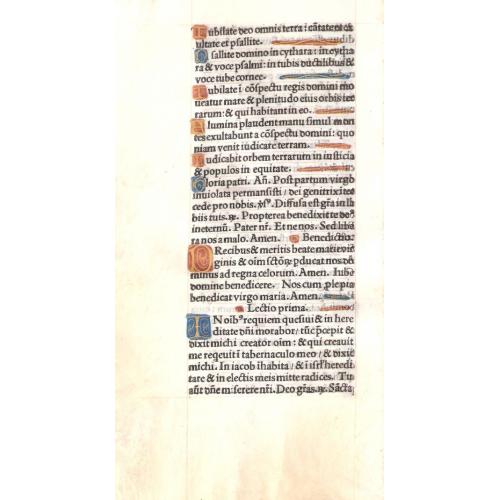 Iubilate deo omnis terra : cãtate et ex
ultate et psallite.
Psallite domino in cythara : in cytha
ra & voce psalmi : in tubis ductilibus &
voce tube cornee.
Iubilate ĩ cõspectu regis domini mo
ueatur mare & plenitudo eius orbis ter
rarum : & qui habitant in eo.
Flumina plaudent manu simul mon
tes exultabunt a cõspectu domini : quo
niam venit iudicare terram.
Iudicabit orbem terrarum in iusticia
& populos in equitate.
Gloria patri. Añ. Post partum virgo
inuiolata permansisti / dei genitrix ĩter
cede pro nobis. Diffusa est grã in la
biis tuis. Propterea benedixit te deꝰ
in eternũ. Pater nr̃. Et ne nos. Sed libe
ra nos a malo. Amen. Benedictio.
PRecibus & meritis beate marie vir
ginis & oĩm sctõꝝ pducat nos do
minus ad regna celorum. Amen. Iube
domine benedicere. Nos cum ple pia
benedicat virgo maria. Amen.
Lectio prima.
IN oĩbꝰ requiem quesiui & in here
ditate dñi morabor / tũc pͤcepit &
dixit michi creator oĩm : & qui creauit
me reqeuit ĩ tabernaculo meo / & dixit
michi. In iacob ĩhabita / & ĩ isrl̃ heredi
tare & in electis meis mitte radices. Tu
aũt dñe miserere nr̃i. Deo grãs. Sãcta